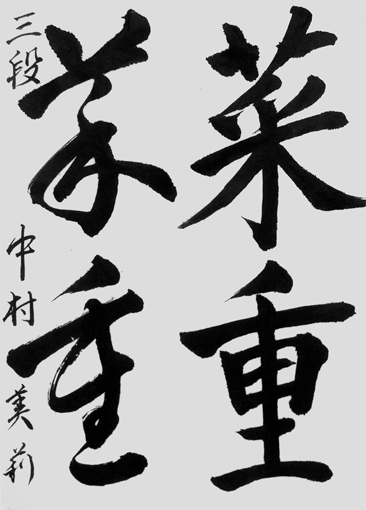 菜重
菜重
三段 中村美莉